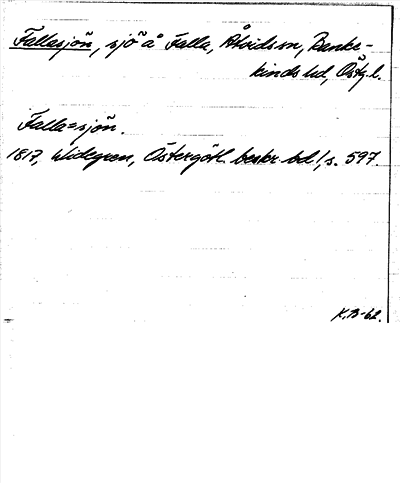 Fallasjön, sjö å Falla, Åtvids sn, Banke-
kinds hd, Östg.l.
Falla=sjön.
1817, Widegren, Östergöth. beskr. bd 1, s. 597
K.B-62.